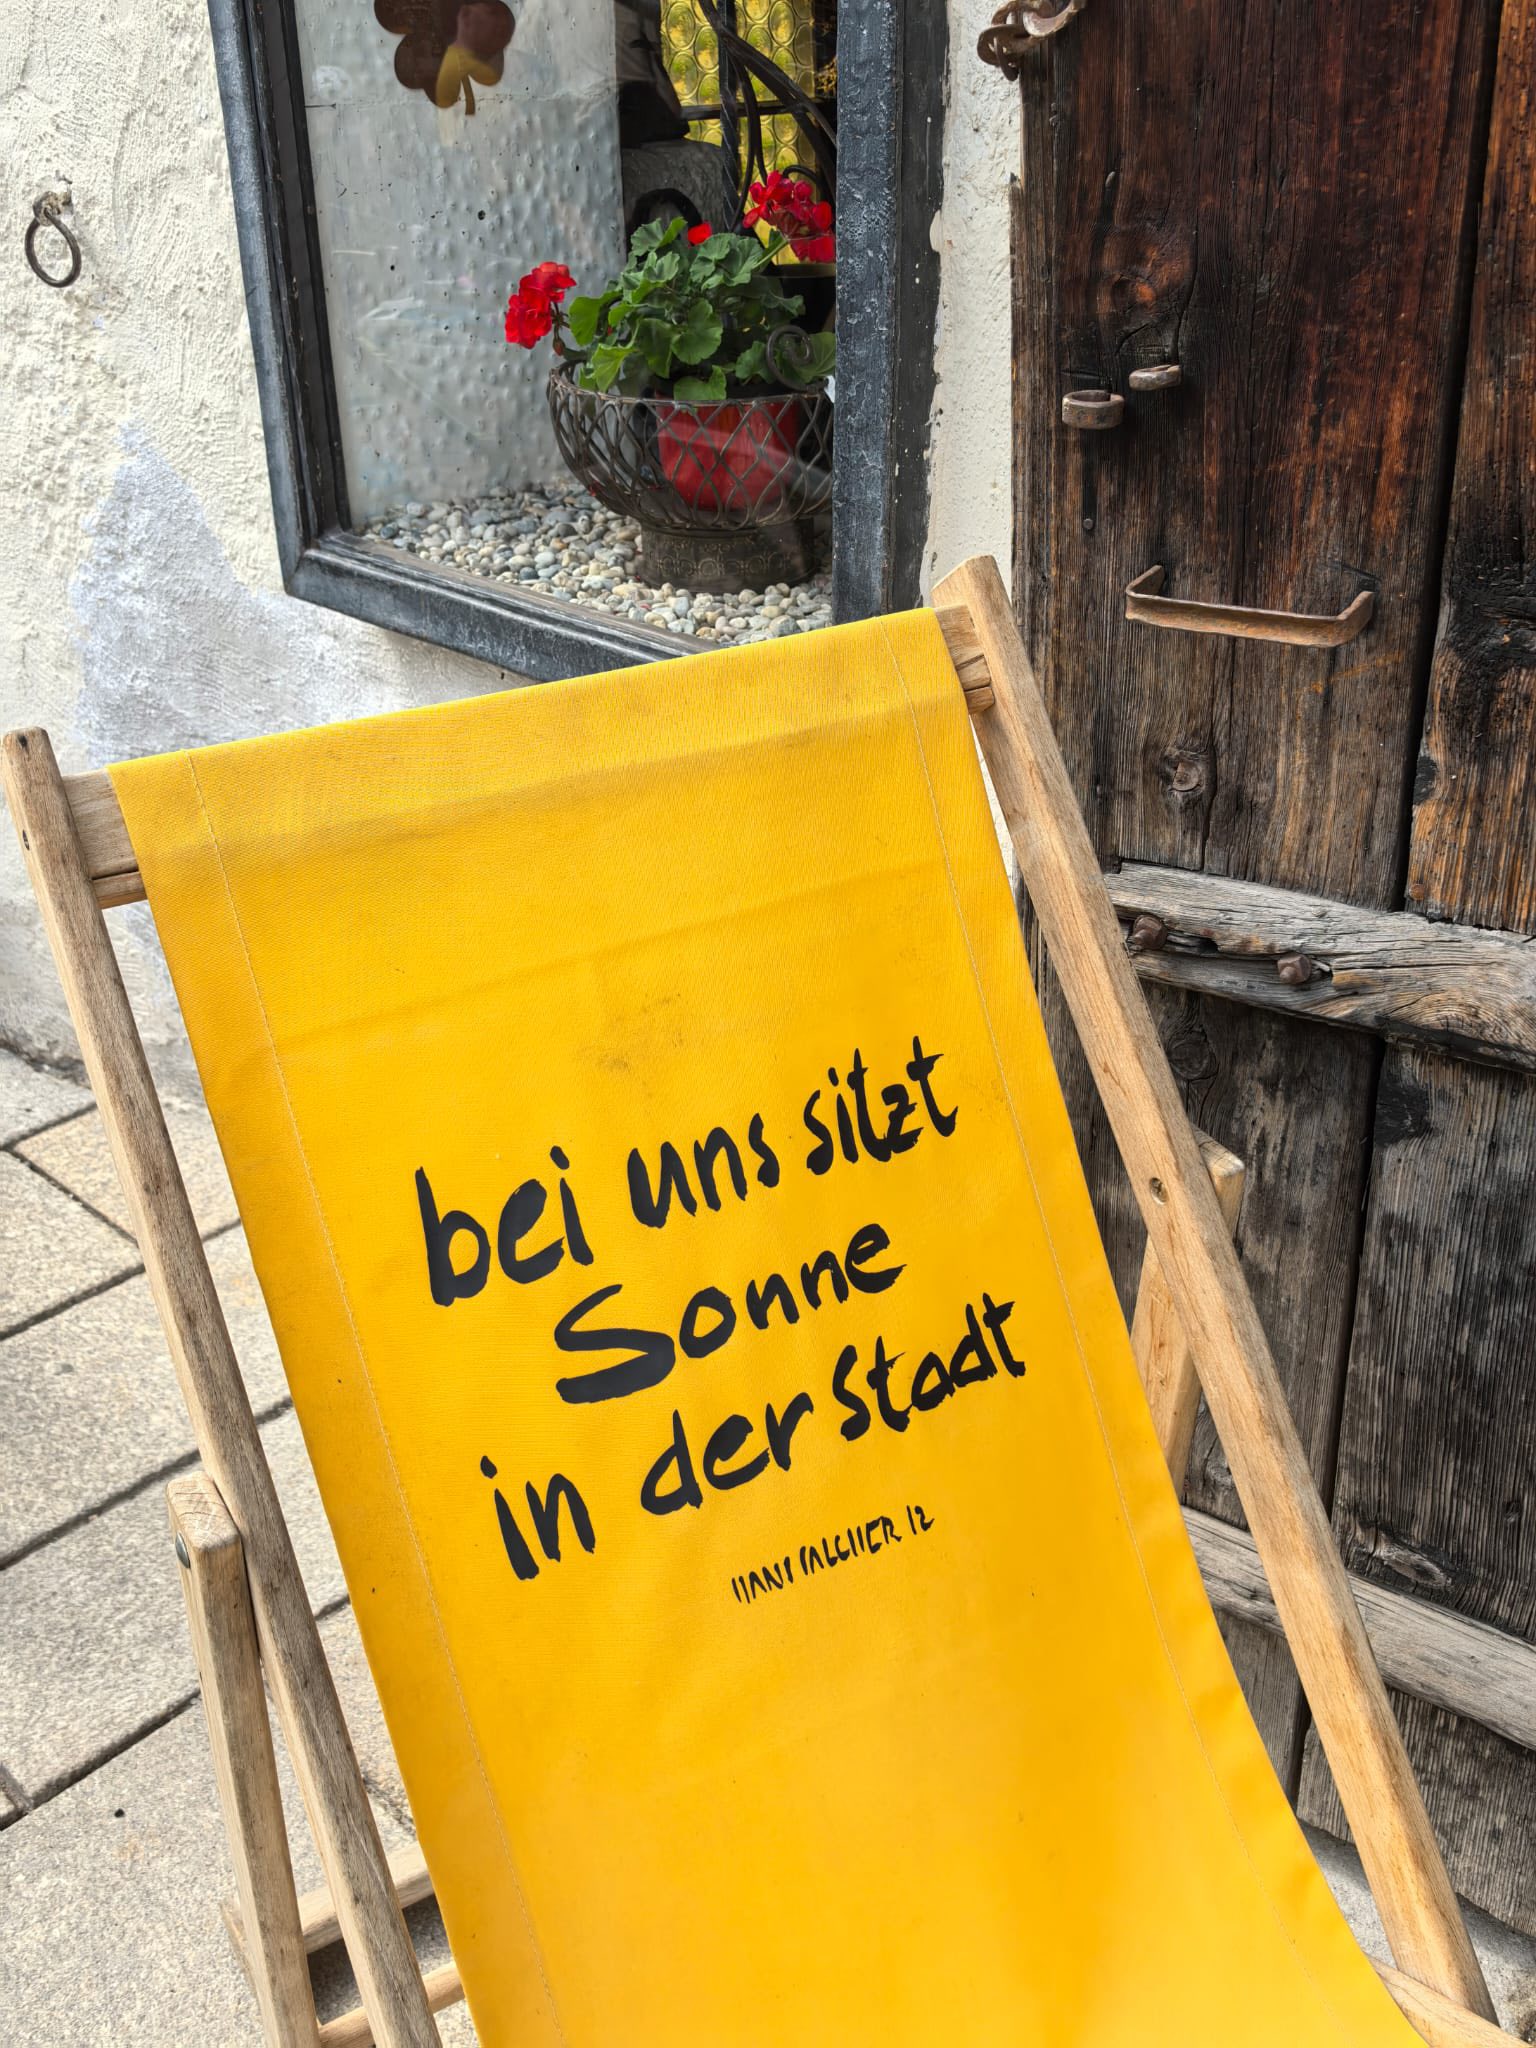 bei uns sitzt
Sonne
in der Stadt
HANS SALCHER 12